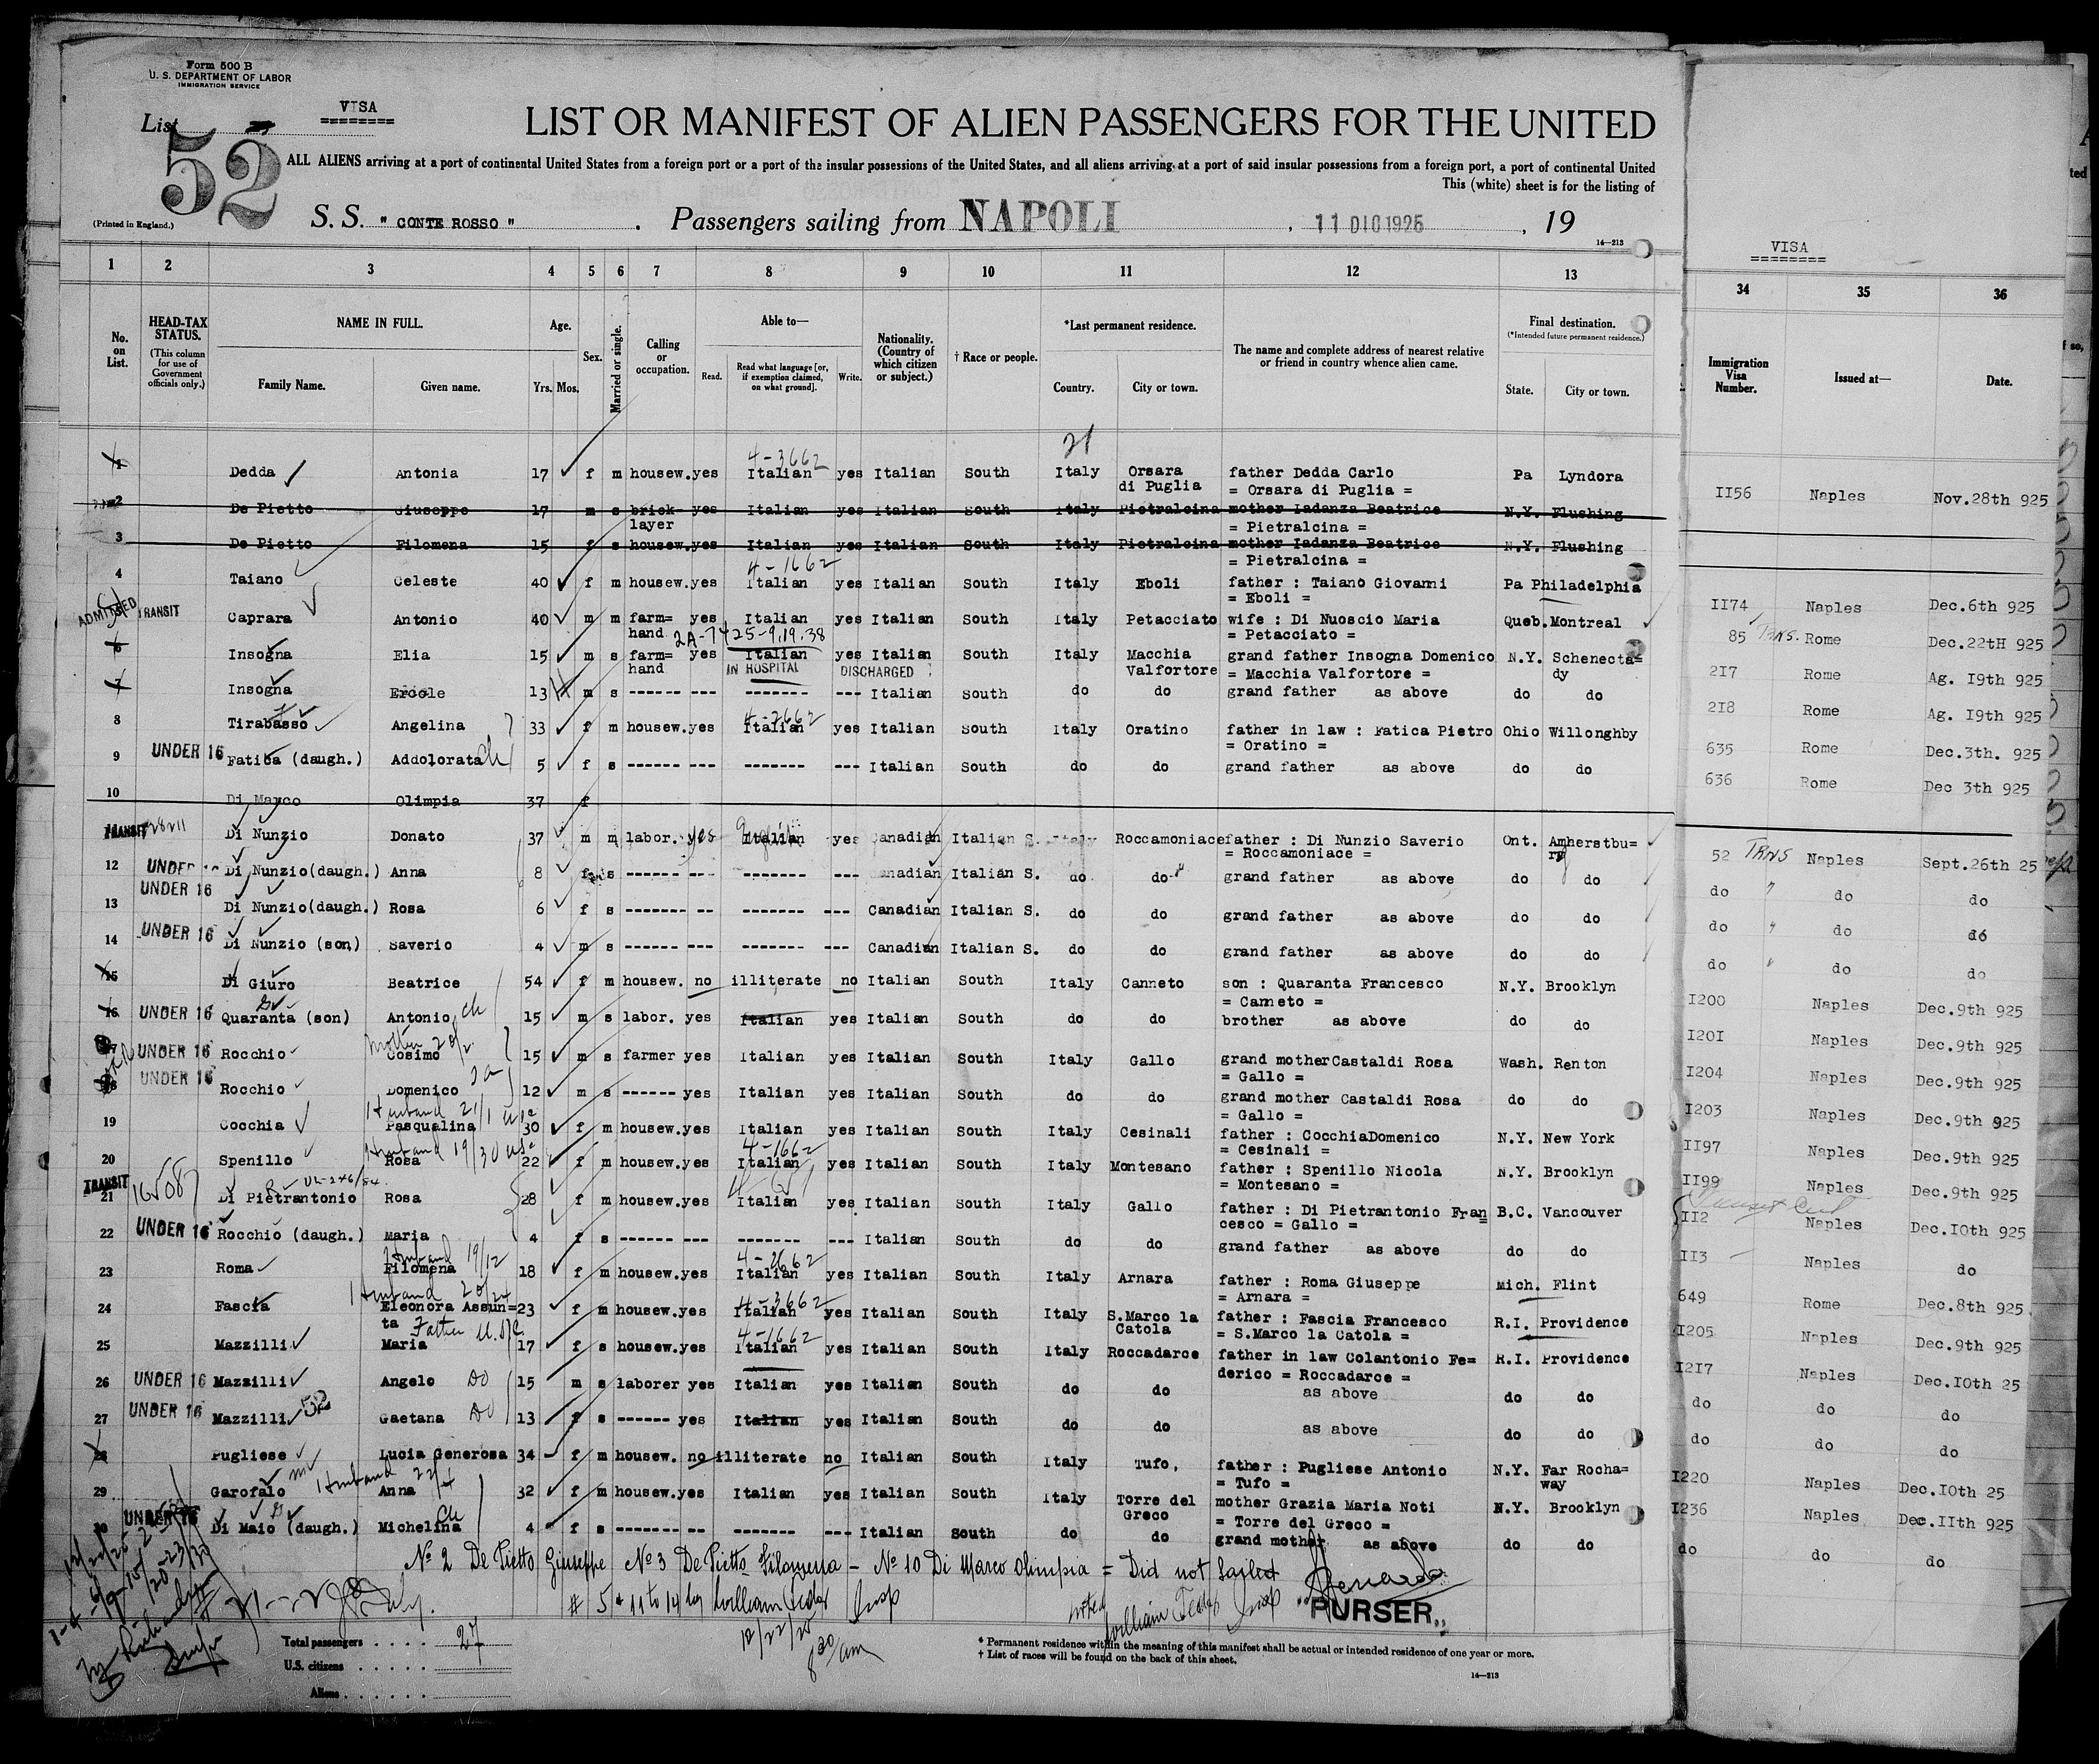 Form 500 B
U. S. DEPARTMENT OF LABOR
IMMIGRATION SERVICE
VISA
List
52
LIST OR MANIFEST OF ALIEN PASSENGERS FOR THE UNITED
ALL ALIENS arriving at a port of continental United States from a foreign port or a port of the insular possessions of the United States, and all aliens arriving at a port of said insular possessions from a foreign port, a port of continental United
This (white) sheet is for the listing of
(Printed in England.)
S. S. " CONTE ROSSO " . Passengers sailing from NAPOLI , 11 DIC 1925 , 19
14—213
VISA
1 2 3 4 5 6 7 8 9 10 11 12 13 34 35 36
No. on List.
HEAD-TAX STATUS.
(This column for use of Government officials only.)
NAME IN FULL.
Family Name. Given name.
Age.
Yrs. Mos.
Sex.
Married or single.
Calling or occupation.
Able to—
Read. Read what language [or, if exemption claimed, on what ground]. Write.
Nationality. (Country of which citizen or subject.)
† Race or people.
*Last permanent residence.
Country. City or town.
The name and complete address of nearest relative or friend in country whence alien came.
Final destination.
(*Intended future permanent residence.)
State. City or town.
Immigration Visa Number.
Issued at—
Date.
21
4-3662
1 Dedda Antonia 17 f m housew. yes Italian yes Italian South Italy Orsara di Puglia father Dedda Carlo = Orsara di Puglia = Pa Lyndora II56 Naples Nov.28th 925
2 De Pietto Giuseppe 17 m s brick-layer yes Italian yes Italian South Italy Pietralcina mother Iadanza Beatrice = Pietralcina = N.Y. Flushing
3 De Pietto Filomena 15 f s housew. yes Italian yes Italian South Italy Pietralcina mother Iadanza Beatrice = Pietralcina = N.Y. Flushing
4-1662
4 Taiano Celeste 40 f m housew. yes Italian yes Italian South Italy Eboli father : Taiano Giovanni = Eboli = Pa Philadelphia II74 Naples Dec.6th 925
ADMITTED TRANSIT
5 Caprara Antonio 40 m m farm=hand yes Italian yes Italian South Italy Petacciato wife : Di Nuoscio Maria = Petacciato = Queb. Montreal 85 Trns. Rome Dec.22tH 925
6 Insogna Elia 15 m s farm=hand yes Italian yes Italian South Italy Macchia Valfortore grand father Insogna Domenico = Macchia Valfortore = N.Y. Schenecta=dy 2I7 Rome Ag. I9th 925
IN HOSPITAL DISCHARGED
7 Insogna Ercole 13 m s ------ --- ------- --- Italian South do do grand father as above do do 2I8 Rome Ag. I9th 925
4-2662
8 Tirabasso Angelina 33 f m housew. yes Italian yes Italian South Italy Oratino father in law : Fatica Pietro = Oratino = Ohio Willonghby 635 Rome Dec.3th. 925
9 UNDER 16 Fatica (daugh.) Addolorata ch 5 f s ------ --- ------- --- Italian South do do grand father as above do do 636 Rome Dec 3th 925
10 Di Marco Olimpia 37 f
TRANSIT
Di Nunzio Donato 37 m m labor. yes Italian yes Canadian Italian S. Italy Roccamoniace father : Di Nunzio Saverio = Roccamoniace = Ont. Amherstbu=rg 52 TRNS Naples Sept.26th 25
12 UNDER 16 Di Nunzio(daugh.) Anna 8 f s ------- --- ------- --- Canadian Italian S. do do grand father as above do do do " do do
13 UNDER 16 Di Nunzio(daugh.) Rosa 6 f s ------- -- ------- --- Canadian Italian S. do do grand father as above do do do " do do
14 UNDER 16 Di Nunzio (son) Saverio 4 m s ------ --- ------- --- Canadian Italian S. do do grand father as above do do do " do do
15 Di Giuro Beatrice 54 f m housew. no illiterate no Italian South Italy Canneto son : Quaranta Francesco = Canneto = N.Y. Brooklyn I200 Naples Dec.9th 925
16 UNDER 16 Quaranta (son) Antonio ch 15 m s labor. yes Italian yes Italian South do do brother as above do do I20I Naples Dec.9th 925
17 UNDER 16 Rocchio Cosimo 15 m s farmer yes Italian yes Italian South Italy Gallo grand mother Castaldi Rosa = Gallo = Wash. Renton I204 Naples Dec.9th 925
18 UNDER 16 Rocchio Domenico 12 m s ------ yes Italian yes Italian South do do grand mother Castaldi Rosa = Gallo = do do I203 Naples Dec.9th 925
Husband 21/1
19 Cocchia Pasqualina 30 f m housew. yes Italian yes Italian South Italy Cesinali father : CocchiaDomenico = Cesinali = N.Y. New York II97 Naples Dec.9th 925
Husband 19/30
4-1662
20 Spenillo Rosa 22 f m housew. yes Italian yes Italian South Italy Montesano father : Spenillo Nicola = Montesano = N.Y. Brooklyn II99 Naples Dec.9th 925
TRANSIT
21 Di Pietrantonio Rosa 28 f m housew. yes Italian yes Italian South Italy Gallo father : Di Pietrantonio Fran=cesco = Gallo = B.C. Vancouver II2 Naples Dec.I0th 925
22 UNDER 16 Rocchio (daugh.) Maria 4 f s ------ --- ------- --- Italian South do do grand father as above do do II3 Naples do
Husband 19/12
4-2662
23 Roma Filomena 18 f m housew. yes Italian yes Italian South Italy Arnara father : Roma Giuseppe = Arnara = Mich. Flint 649 Rome Dec.8th 925
Husband 20/24
4-3662
24 Fascia Eleonora Assun=ta 23 f m housew. yes Italian yes Italian South Italy S.Marco la Catola father : Fascia Francesco = S.Marco la Catola = R.I. Providence I205 Naples Dec.9th 925
Father
4-1662
25 Mazzilli Maria 17 f s housew. yes Italian yes Italian South Italy Roccadarce father in law Colantonio Fe=derico = Roccadarce = R.I. Providence I2I7 Naples Dec.I0th 25
26 UNDER 16 Mazzilli Angelo Do 15 m s laborer yes Italian yes Italian South do do as above do do do do do
27 UNDER 16 Mazzilli 52 Gaetana Do 13 f s ------ yes Italian yes Italian South do do as above do do do do do
28 Pugliese Lucia Generosa 34 f m housew. no illiterate no Italian South Italy Tufo, father : Pugliese Antonio = Tufo = N.Y. Far Rocha=way I220 Naples Dec.I0th 25
Husband
29 Garofalo Anna 32 f m housew. yes Italian yes Italian South Italy Torre del Greco mother Grazia Maria Noti = Torre del Greco = N.Y. Brooklyn I236 Naples Dec.IIth 925
30 UNDER 16 Di Maio (daugh.) Michelina ch 4 f s ------- -- ------- --- Italian South do do grand mother as above do do do do do
No 2 De Pietto Giuseppe No 3 De Pietto Filomena - No 10 Di Marco Olimpia = Did not Sailed
# 5 + 11 to 14 by William Insp
12/22/25
8 30/am
PURSER
Total passengers . . . . 27
U.S. citizens . . . . .
Aliens . . . . . .
* Permanent residence within the meaning of this manifest shall be actual or intended residence of one year or more.
† List of races will be found on the back of this sheet.
14—213